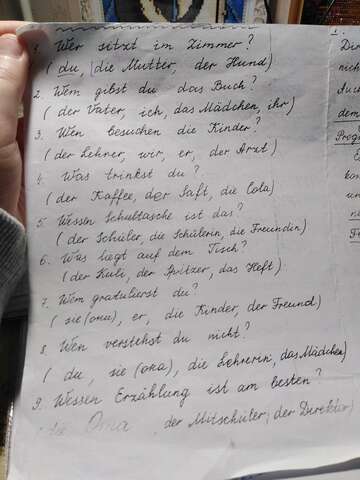 1. Wer sitzt im Zimmer?
( du, die Mutter, der Hund)
2. Wem gibst du das Buch?
( der Vater, ich, das Mädchen, ihr)
3. Wen besuchen die Kinder?
(der Lehrer, wir, er, der Arzt)
4. Was trinkst du?
(der Kaffee, der Saft, die Cola)
5. Wessen Schultasche ist das?
(der Schüler, die Schülerin, die Freundin)
6. Was liegt auf dem Tisch?
(der Kuli, der Spitzer, das Heft)
7. Wem gratulierst du?
( sie (они), er, die Kinder, der Freund)
8. Wen verstehst du nicht?
( du, sie (она), die Lehrerin, das Mädchen)
9. Wessen Erzählung ist am besten?
Oma, der Mitschüler, der Direktor)
1.
Die
nich
Auch
dem
Prog